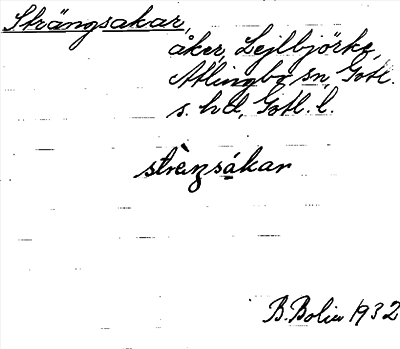 Strängsakar,
åker, Lejlbjörke,
Atlingbo sn, Gotl.
s. hd, Gotl. l.
strèŋsákar
B. Bolin 1932